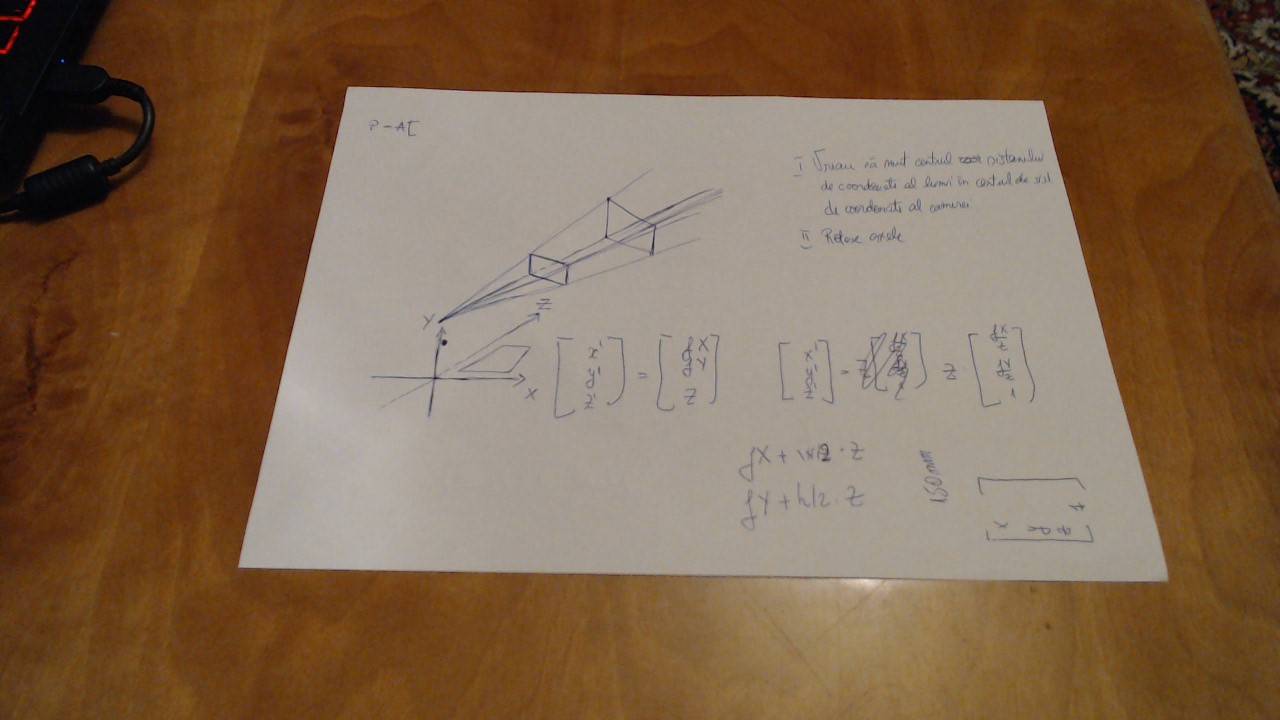 P = A[
I Vreau să mut centrul sistemului
de coordonate al lumii în centrul de sist
de coordonate al camerei
II Rotesc axele
Y
Z
X
[x' y' z'] = [fX fY Z]
[x' y' z'] = Z [fX/Z fY/Z 1]
fX + w/2 · Z
fY + h/2 · Z
150mm